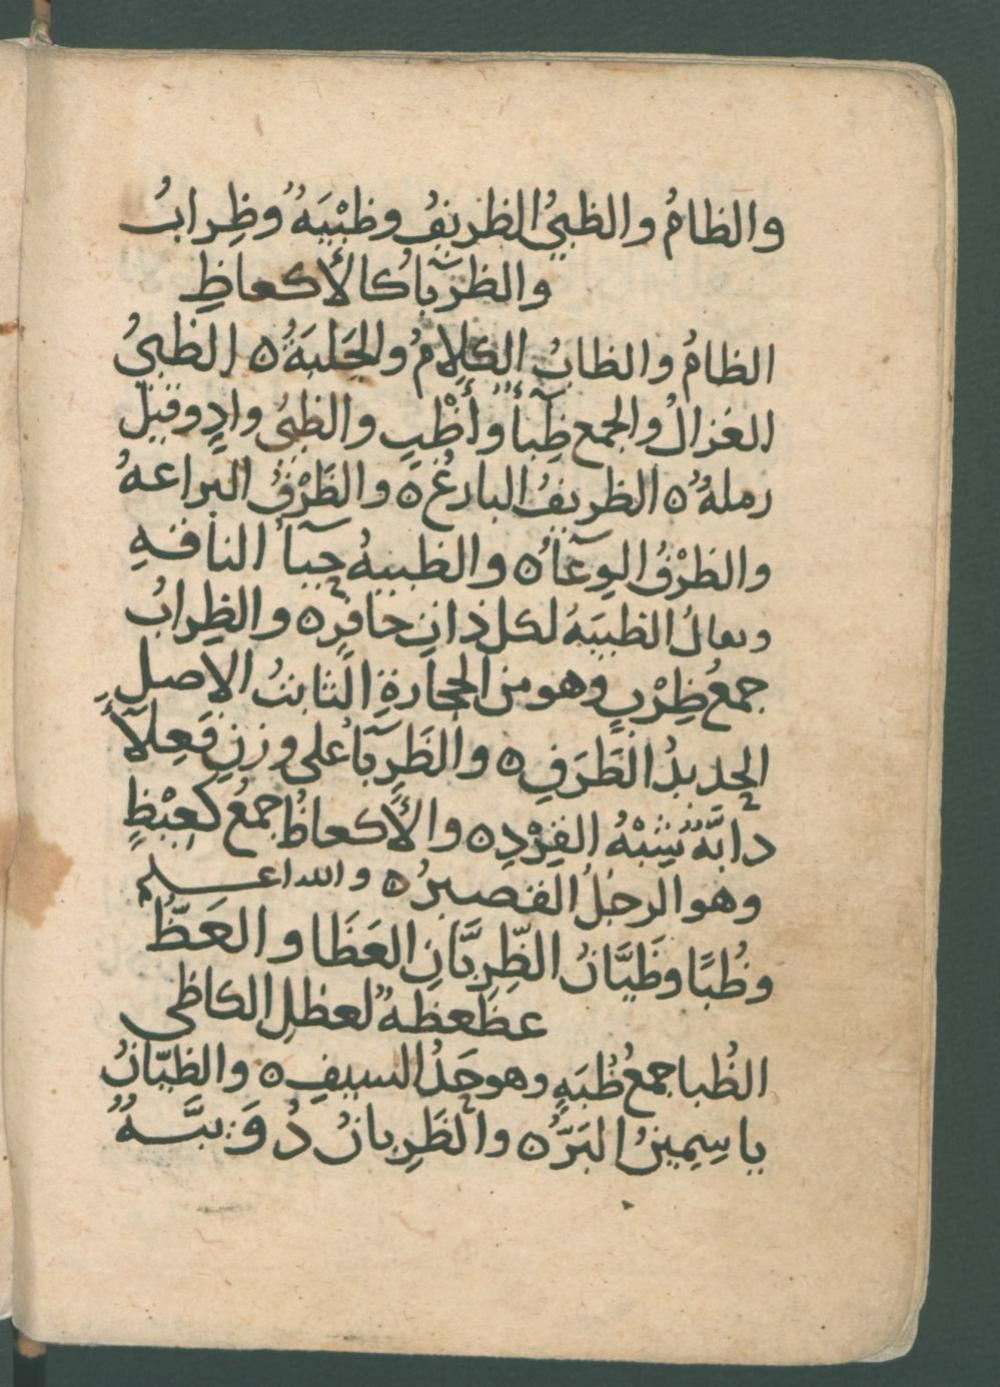 والظامُ والظبيُ الظريفُ وظبْيَةٌ وظِرابُ
والظرِبآءُ كالأكعاظِ
الظامُ والظابُ الكلامُ والجَلبَةُ ه الظبيُ
الغزالُ والجمع ظِبآءٌ وأظْبٍ والظبيُ وادٍ وقيلَ
رملةٌ ه الظريفُ البارعُ ه والظَرْفُ البراعةُ
والظرْفُ الوِعَآءُ ه والظبيةُ حيآءُ الناقةِ
ويقالُ الظبيَةُ لكل ذاتِ حافرٍ ه والظِرابُ
جمعُ ظِرْبٍ وهو من الحجارةِ الثابتُ الاصلِ
الحديدُ الطَرَفِ ه والظَرِبَآءُ على وزنِ فَعِلآءَ
دابَّةٌ تشبهُ القِرْدِ ه والأكعاظُ جمعُ كَعِيْظٍ
وهو الرجلُ القصيرُ ه والله اعلم
وظُبًا وظَيَّانُ الظِرِبَّانِ العَظَا والعَظُّ
عظعظةٌ لعظلِ الكاظى
الظُبا جمعُ ظُبَةٍ وهو حَدُّ السيفِ ه والظيّانُ
ياسِمِينُ البَرِّ ه والظَرِبانُ دُوَيبَّةٌ